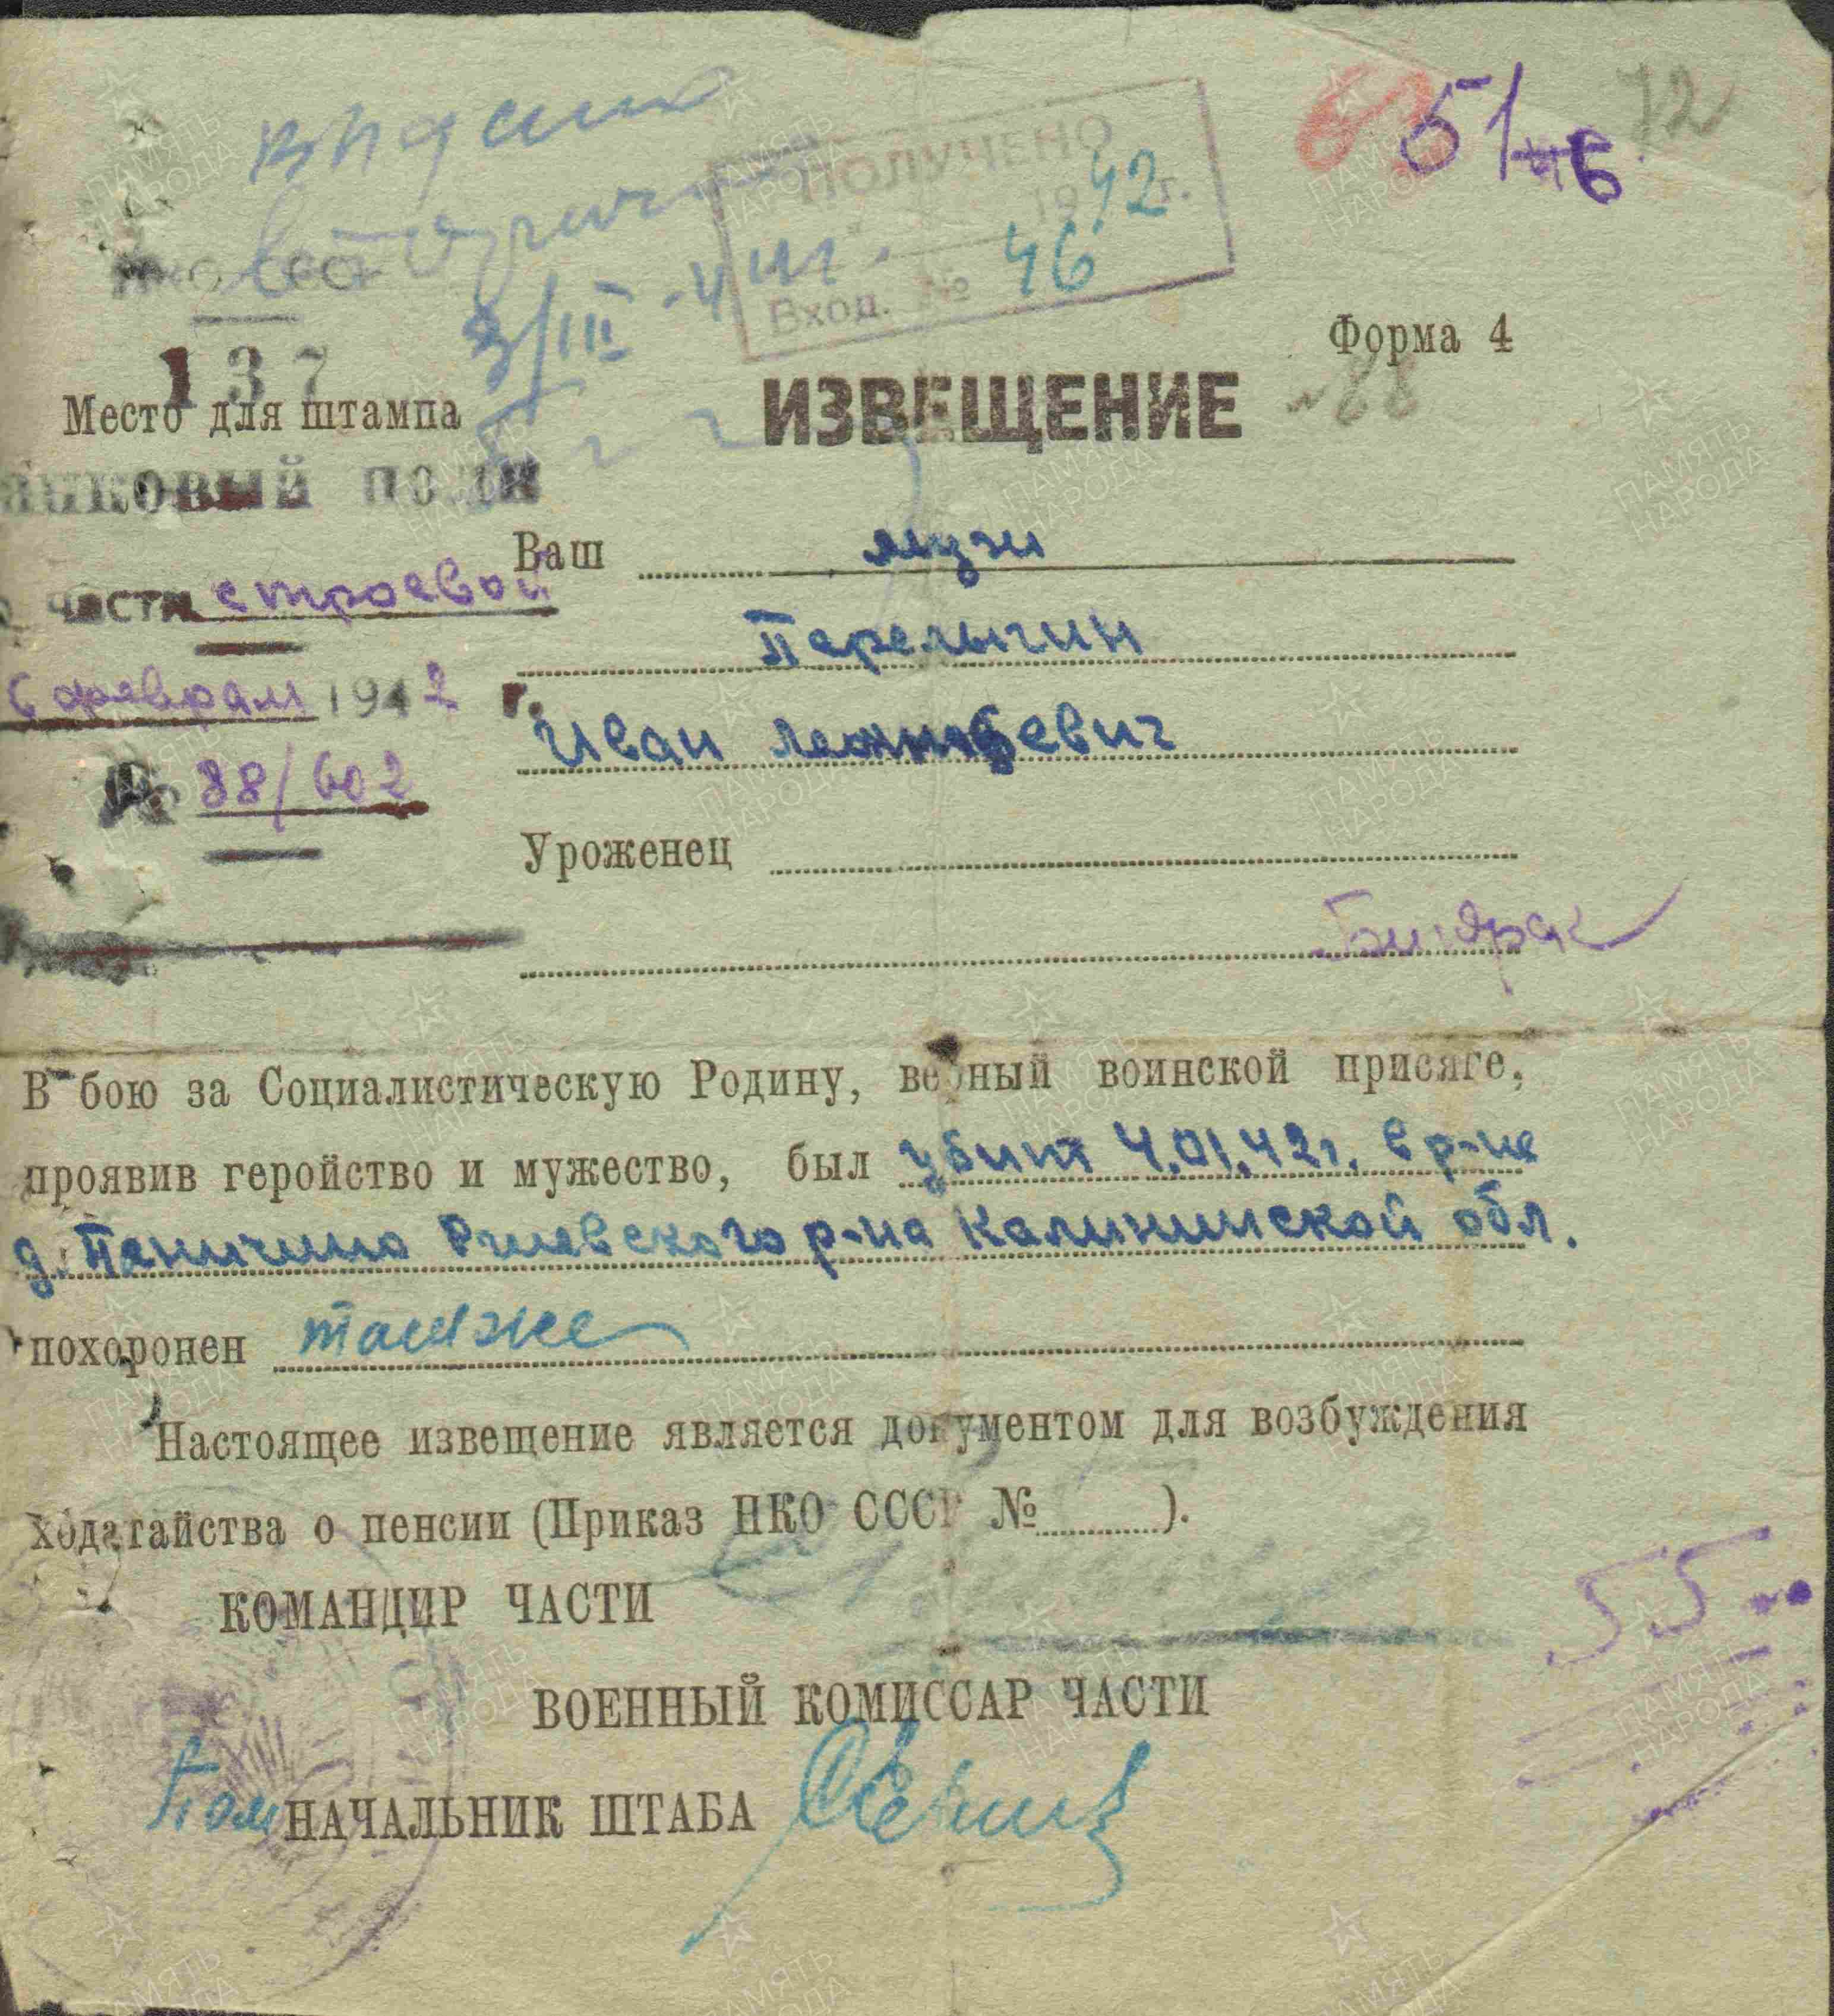 выдано
вторично
ПОЛУЧЕНО
1942 г.
Вход. № 46
51
72
НКО СССР
3/III-
137
Форма 4
Место для штампа
ИЗВЕЩЕНИЕ
№88
танковый полк
Ваш муж
части строевой
Перелыгин
6 февраля 1942 г.
Иван
№ 88/602
Уроженец
В бою за Социалистическую Родину, верный воинской присяге,
проявив геройство и мужество, был убит 4.01.42г. в р-не
д. Паничино Ржевского р-на Калининской обл.
похоронен там же
Настоящее извещение является документом для возбуждения
ходатайства о пенсии (Приказ НКО СССР № ).
КОМАНДИР ЧАСТИ
55
ВОЕННЫЙ КОМИССАР ЧАСТИ
Пом НАЧАЛЬНИК ШТАБА
ПАМЯТЬ
НАРОДА